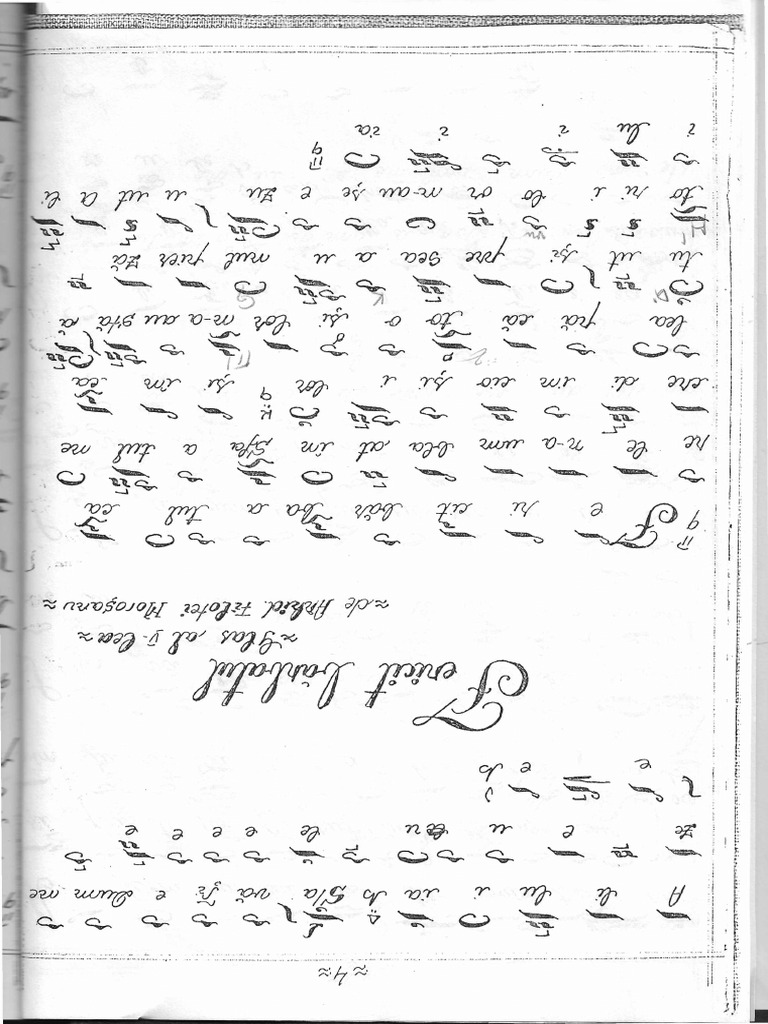 ≈4≈
A li lu i ia Sla vă Ți e Dum ne
ze e u le e e e e
e e
Fericit bărbatul
≈Glas al V-lea≈
≈de Arhid. Filotei Moroșanu≈
F e ri cit băr ba a tul ca
re le n-a um bla at în Sfa a tul ne
cre di in cio și i lor și în ca
lea pă că to o și lor n-a au stă ă
tu ut și pre sca a u nul pier ză
to ri i lo or n-au șe e zu u ut A li
i lu i i ia